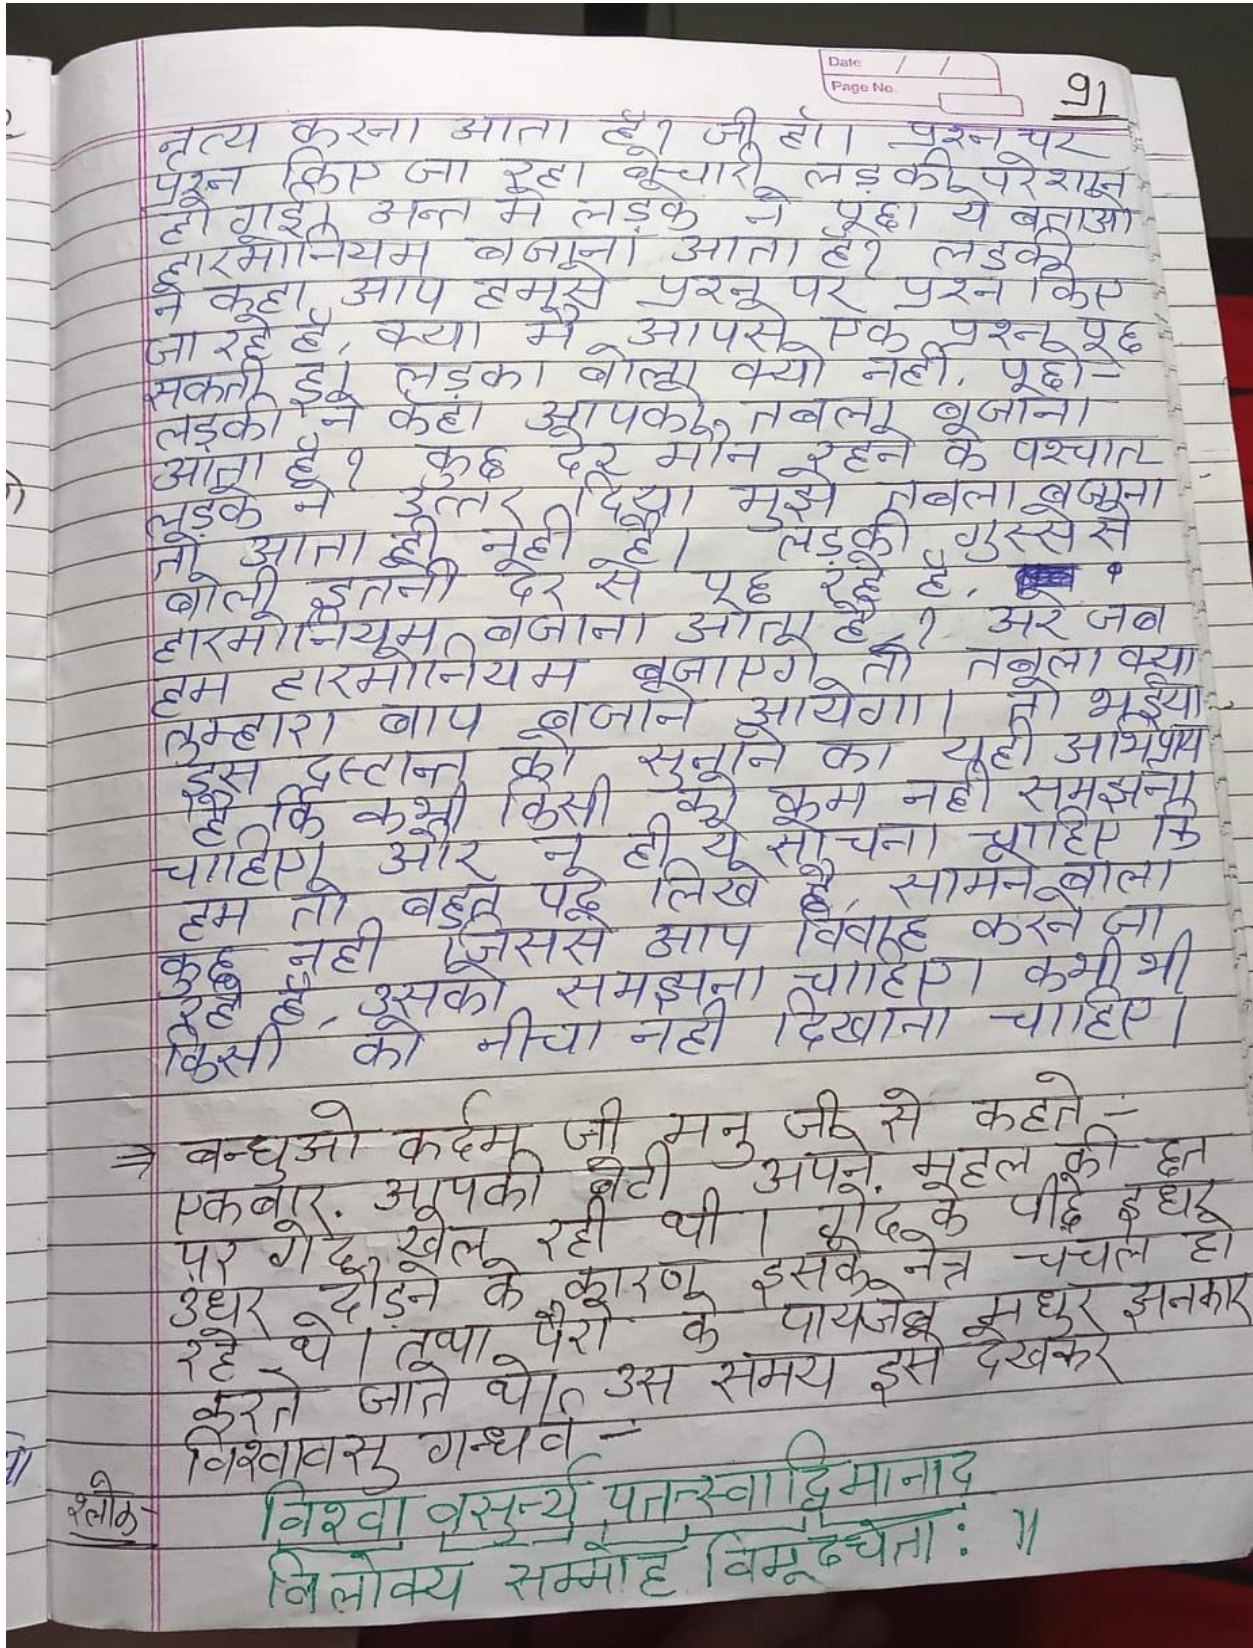 Date / /
Page No.
91
नृत्य करना आता है? जी हाँ। प्रश्न पर
प्रश्न किए जा रहा बेचारी लड़की परेशान
हो गई। अन्त मे लड़के ने पूछा ये बताओ
हारमोनियम बजाना आता है? लड़की
ने कहा आप हमसे प्रश्न पर प्रश्न किए
जा रहे है, क्या मै आपसे एक प्रश्न पूछ
सकती हू। लड़का बोला क्यो नही, पूछो-
लड़की ने कहा आपको तबला बजाना
आता है? कुछ देर मौन रहने के पश्चात
लड़के ने उत्तर दिया मुझे तबला बजाना
तो आता ही नही है। लड़की गुस्से से
बोली इतनी देर से पूछ रहे है,
हारमोनियम बजाना आता है? अरे जब
हम हारमोनियम बजाएगे तो तबला क्या
तुम्हारा बाप बजाने आयेगा। तो भईया
इस द्रस्टान्त को सुनाने का यही अभिप्राय
है कि कभी किसी को कम नही समझना
चाहिए और न ही ये सोचना चाहिए कि
हम तो बहुत पढ़े लिखे है, सामने वाला
कुछ नही जिससे आप विवाह करने जा
रहे है, उसको समझना चाहिए। कभी भी
किसी को नीचा नही दिखाना चाहिए।
⇒ बन्धुओ कर्दम जी मनु जी से कहते -
एकबार. आपकी बेटी अपने महल की छत
पर गेद खेल रही थी। गेद के पीछे इधर
उधर दौड़ने के कारण इसके नेत्र चंचल हो
रहे थे। तथा पैरो के पायजेब मधुर झनकार
करते जाते थे। उस समय इसे देखकर
विश्वावसु गन्धर्व -
श्लोक- विश्वा वसुर्न्य पतत्स्वाद्विमानाद
विलोक्य सम्मोह विमूढचेता: ॥